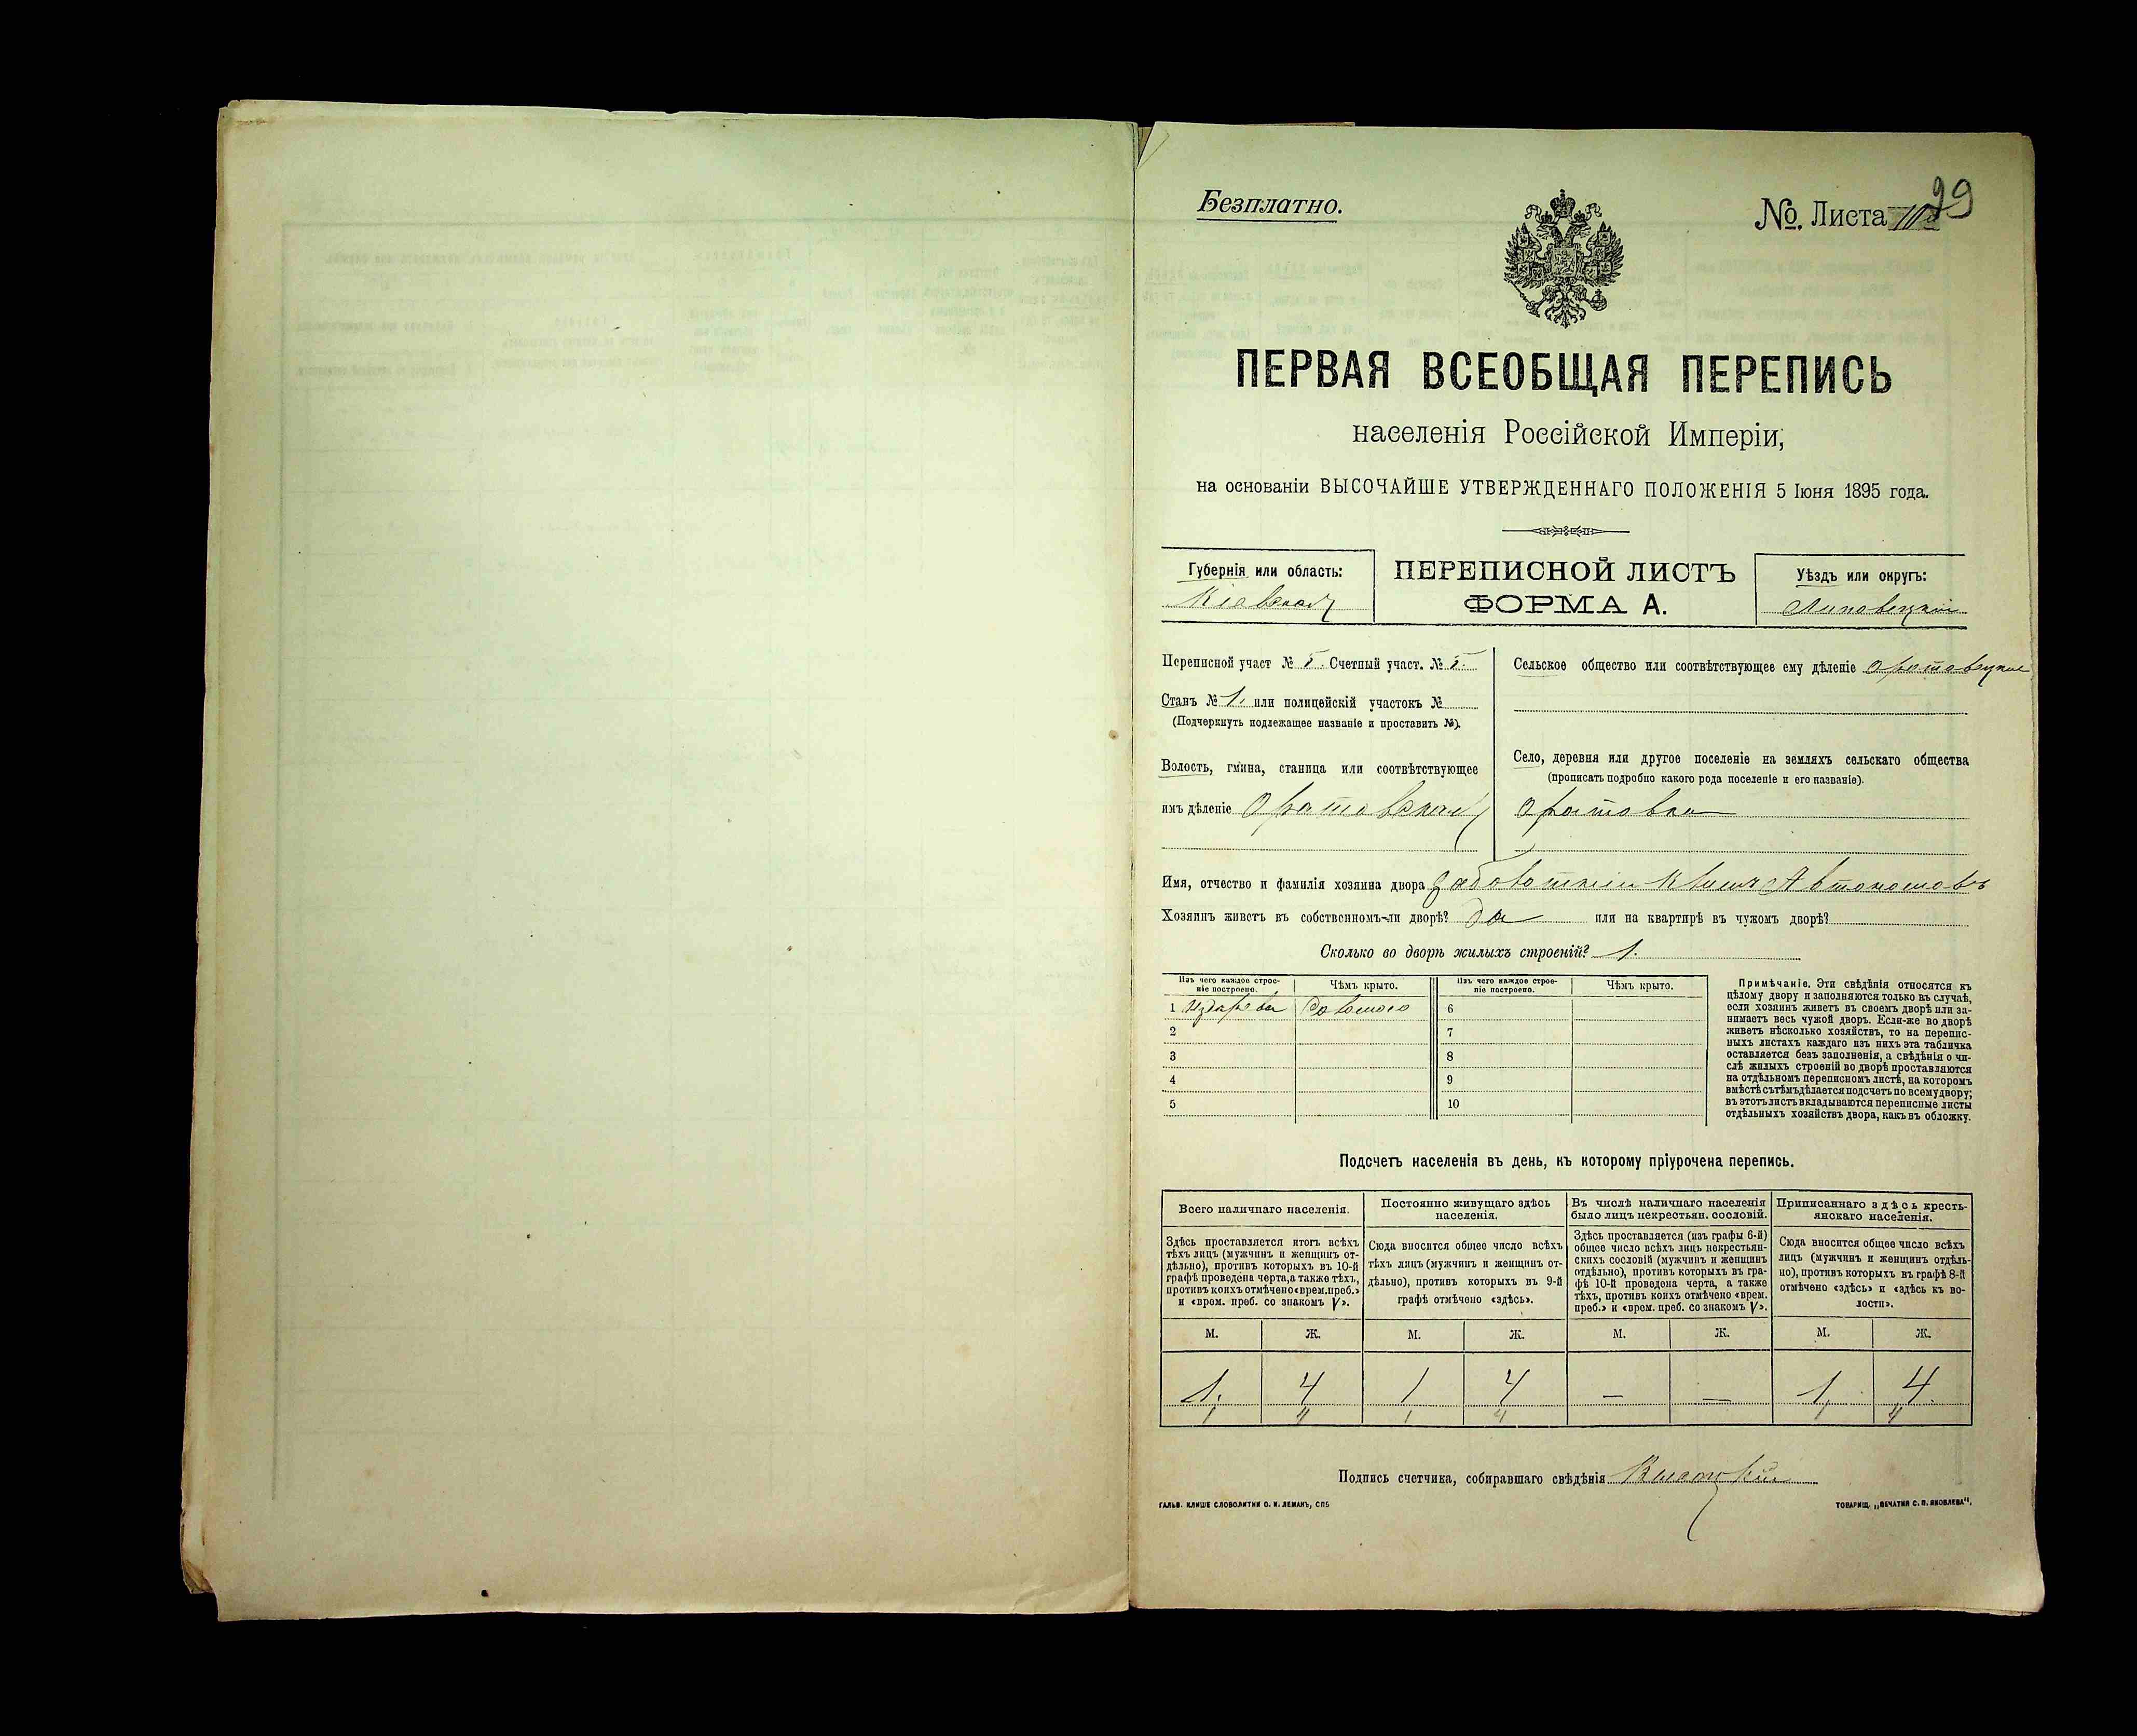 Безплатно.
№ Листа
99
ПЕРВАЯ ВСЕОБЩАЯ ПЕРЕПИСЬ
населенія Россійской Имперіи,
на основаніи ВЫСОЧАЙШЕ УТВЕРЖДЕННАГО ПОЛОЖЕНІЯ 5 Іюня 1895 года.
Губернія или область:
Кіевская
ПЕРЕПИСНОЙ ЛИСТЪ
ФОРМА А.
Уѣздъ или округъ:
Липовецкій
Переписной участ № 5. Счетный участ. № 5.
Станъ № 1. или полицейскій участокъ №
(Подчеркнуть подлежащее названіе и проставить №).
Волость, гмина, станица или соотвѣтствующее
имъ дѣленіе Оратовская
Сельское общество или соотвѣтствующее ему дѣленіе Оратовецкое
Село, деревня или другое поселеніе на земляхъ сельскаго общества
(прописать подробно какого рода поселеніе и его названіе).
Оратовка
Имя, отчество и фамилія хозяина двора Заболотній Автономовъ
Хозяинъ живетъ въ собственномъ-ли дворѣ? да или на квартирѣ въ чужомъ дворѣ?
Сколько во дворѣ жилыхъ строеній? 1.
Изъ чего каждое строе-
ніе построено.
Чѣмъ крыто.
Изъ чего каждое строе-
ніе построено.
Чѣмъ крыто.
1 Издерева Соломою 6
2 7
3 8
4 9
5 10
Примѣчаніе. Эти свѣдѣнія относятся къ
цѣлому двору и заполняются только въ случаѣ,
если хозяинъ живетъ въ своемъ дворѣ или за-
нимаетъ весь чужой дворъ. Если-же во дворѣ
живетъ нѣсколько хозяйствъ, то на перепис-
ныхъ листахъ каждаго изъ нихъ эта табличка
оставляется безъ заполненія, а свѣдѣнія о чи-
слѣ жилыхъ строеній во дворѣ проставляются
на отдѣльномъ переписномъ листѣ, на которомъ
вмѣстѣ съ тѣмъ дѣлается подсчетъ по всему двору;
въ этотъ листъ вкладываются переписные листы
отдѣльныхъ хозяйствъ двора, какъ въ обложку.
Подсчетъ населенія въ день, къ которому пріурочена перепись.
Всего наличнаго населенія.
Здѣсь проставляется итогъ всѣхъ
тѣхъ лицъ (мужчинъ и женщинъ от-
дѣльно), противъ которыхъ въ 10-й
графѣ проведена черта, а также тѣхъ,
противъ коихъ отмѣчено «врем. преб.»
и «врем. преб. со знакомъ V».
Постоянно живущаго здѣсь
населенія.
Сюда вносится общее число всѣхъ
тѣхъ лицъ (мужчинъ и женщинъ от-
дѣльно), противъ которыхъ въ 9-й
графѣ отмѣчено «здѣсь».
Въ числѣ наличнаго населенія
было лицъ некрестьян. сословій.
Здѣсь проставляется (изъ графы 6-й)
общее число всѣхъ лицъ некрестьян-
скихъ сословій (мужчинъ и женщинъ
отдѣльно), противъ которыхъ въ гра-
фѣ 10-й проведена черта, а также
тѣхъ, противъ коихъ отмѣчено «врем.
преб.» и «врем. преб. со знакомъ V».
Приписаннаго здѣсь кресть-
янскаго населенія.
Сюда вносится общее число всѣхъ
лицъ (мужчинъ и женщинъ отдѣль-
но), противъ которыхъ въ графѣ 8-й
отмѣчено «здѣсь» и «здѣсь къ во-
лости».
М. Ж. М. Ж. М. Ж. М. Ж.
1. 4 1 4 — — 1. 4.
1 4 1 4 1 4
Подпись счетчика, собиравшаго свѣдѣнія
ГАЛЬВ. КЛИШЕ СЛОВОЛИТНИ О. И. ЛЕМАНЪ, СПБ
ТОВАРИЩ. „ПЕЧАТНЯ С. П. ЯКОВЛЕВА".